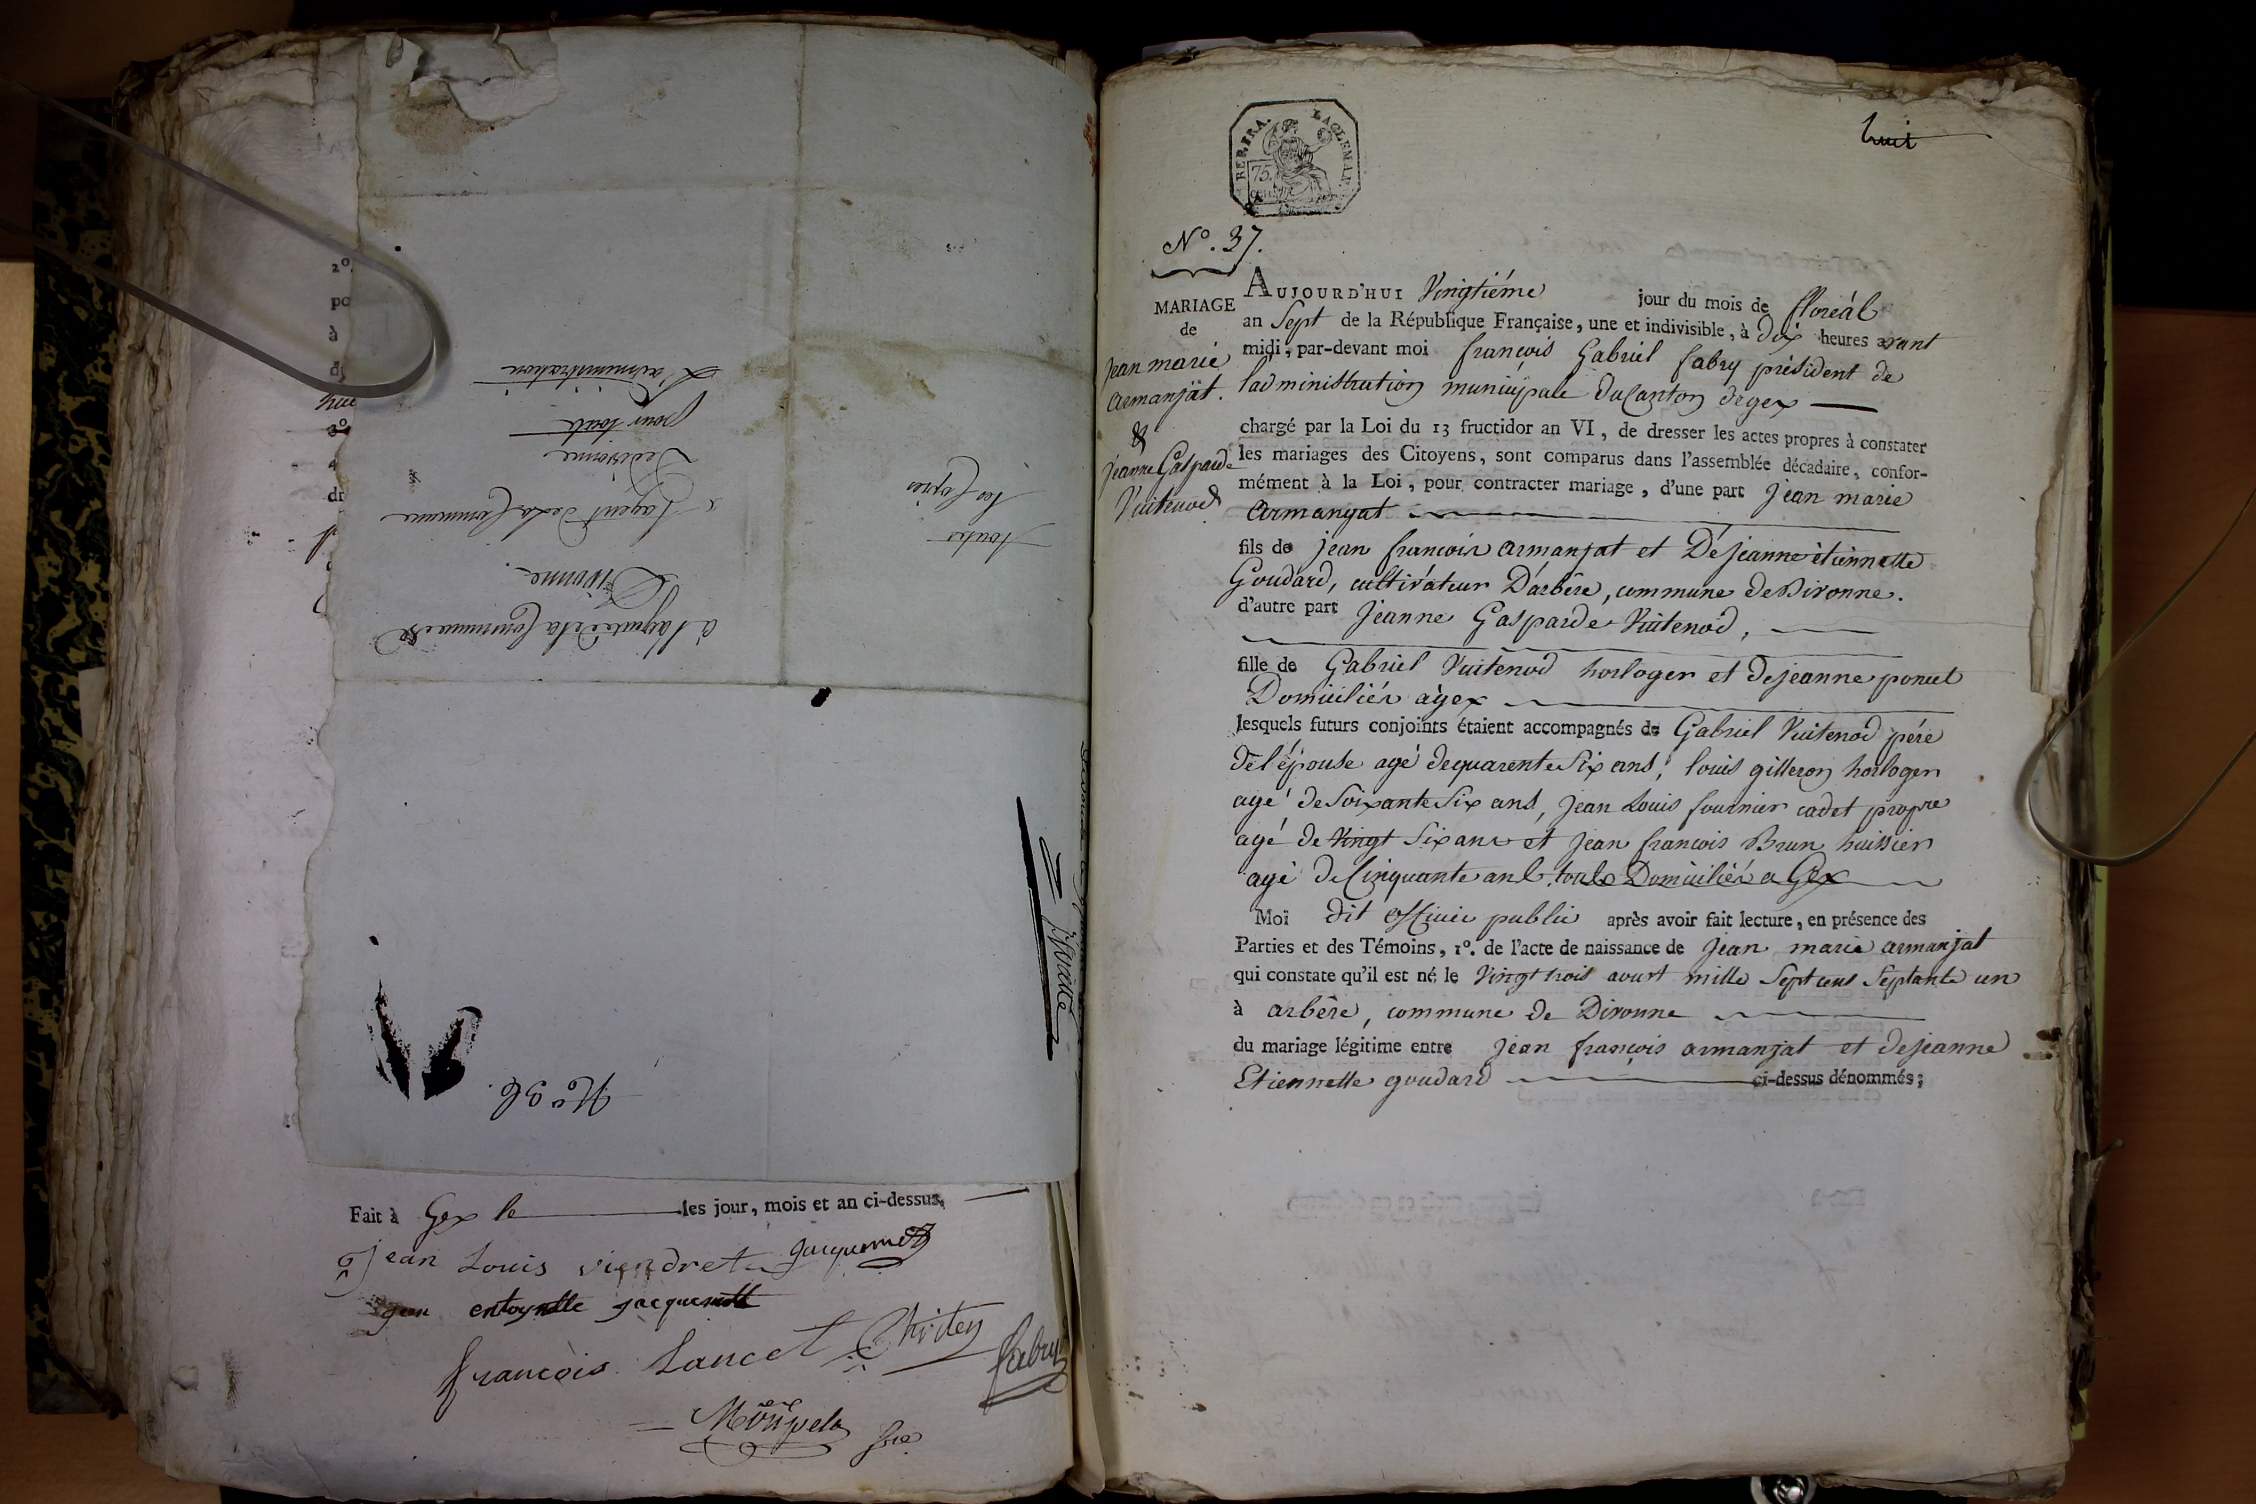 2º
po
à
3º
4
dr
L'administration
pour toute
Dedivonne
L'agent de la Commune
Divonne
à l'agent de la Commune de
toutes
les Copies
Nº 36.
Fait à Gex le les jour, mois et an ci-dessus,
jean Louis viendret jacquemet
françois Lancet Christin
fabry
huit
REP. FRA.
75.
Nº. 37.
MARIAGE
de
Jean marie
armanjat.
&
jeanne Gasparde
Vuitenod
AUJOURD'HUI Vingtiéme jour du mois de floréal
an Sept de la République Française, une et indivisible, à dix heures avant
midi, par-devant moi françois Gabriel fabry président de
l'administration municipale du Canton de gex
chargé par la Loi du 13 fructidor an VI, de dresser les actes propres à constater
les mariages des Citoyens, sont comparus dans l'assemblée décadaire, confor-
mément à la Loi, pour contracter mariage, d'une part jean marie
armanjat
fils de jean françois armanjat et De jeanne ètiennette
Goudard, cultivateur D'arbêre, commune de Divonne.
d'autre part Jeanne Gasparde Vuitenod,
fille de Gabriel Vuitenod horloger et de jeanne poncet
Domiciliés à gex
lesquels futurs conjoints étaient accompagnés de Gabriel Vuitenod pére
de l'épouse agé de quarente Six ans, louis gilleron horloger
agé de Soixante Six ans, jean Louis fournier cadet propre
agé de Vingt Six ans et jean françois Brun huissier
agé de Cinquante ans tous Domiciliés a Gex
Moi dit officier public après avoir fait lecture, en présence des
Parties et des Témoins, 1º. de l'acte de naissance de Jean marie armanjat
qui constate qu'il est né le Vingt trois aoust mille Sept cent Septante un
à arbêre, commune de Divonne
du mariage légitime entre jean françois armanjat et de jeanne
Etiennette goudard ci-dessus dénommés;